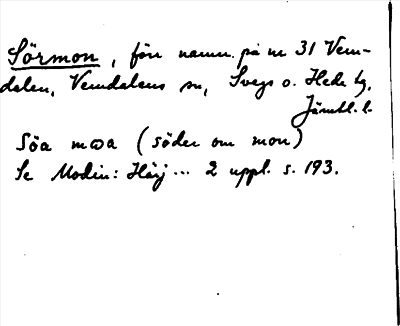 Sörmon, förr namn på nr 31 Vem-
dalen, Vemdalens sn, Svegs o. Hede tg,
Jämtl. l.
Söa mωa (söder om mon)
Se Modin: Härj... 2 uppl. s. 193.